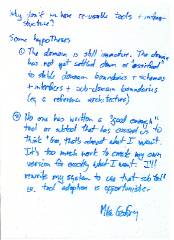 Why don't we have re-usable tools + infra-
structure?
Some hypotheses
① The domain is still immature. The domain
has not yet settled down or "ossified"
to stable domain boundaries + schemas
+ interfaces + sub-domain boundaries
(eg a reference architecture)
② No one has written a "good enough"
tool or subtool that has caused us to
think "Gee, that's almost what I want.
It's too much work to create my own
version for exactly what I want. I'll
rewrite my system to use that subtool"
ie. tool adoption is opportunistic
Mike Godfrey